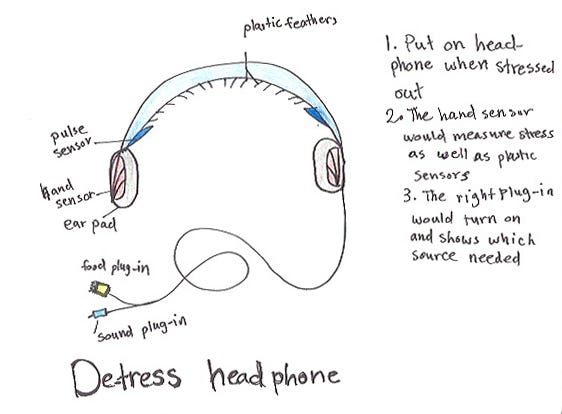 plastic feathers
1. Put on head-
phone when stressed
out
2. The hand sensor
would measure stress
as well as plastic
sensors
3. The right Plug-in
would turn on
and shows which
source needed
pulse
sensor
hand
sensor
ear pad
food plug-in
sound plug-in
Detress headphone